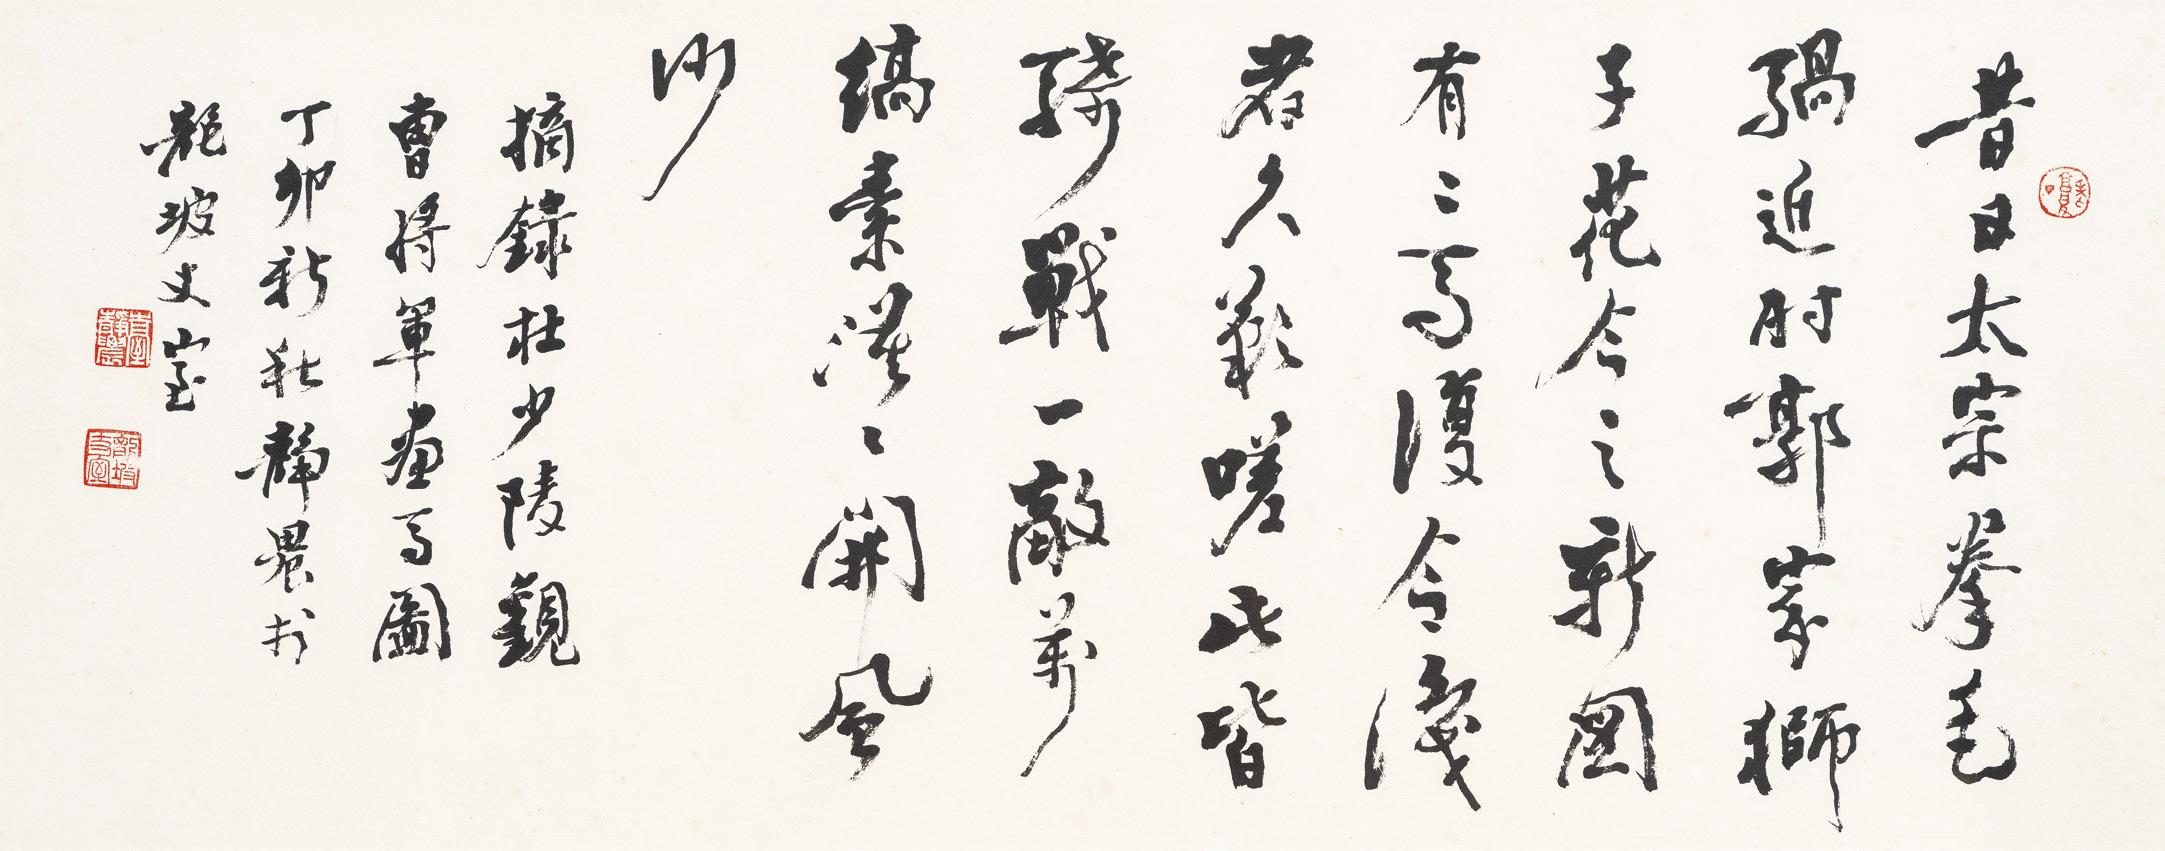 昔日太宗拳毛
騧近時郭家獅
子花今之新圖
有二馬復令識
者久歎嗟此皆
騎戰一敵萬
縞素漠〻開風
沙
摘録杜少陵觀
曹将軍畫馬圖
丁卯新秋靜農书
龍坡丈室
臺靜農
龍坡丈室